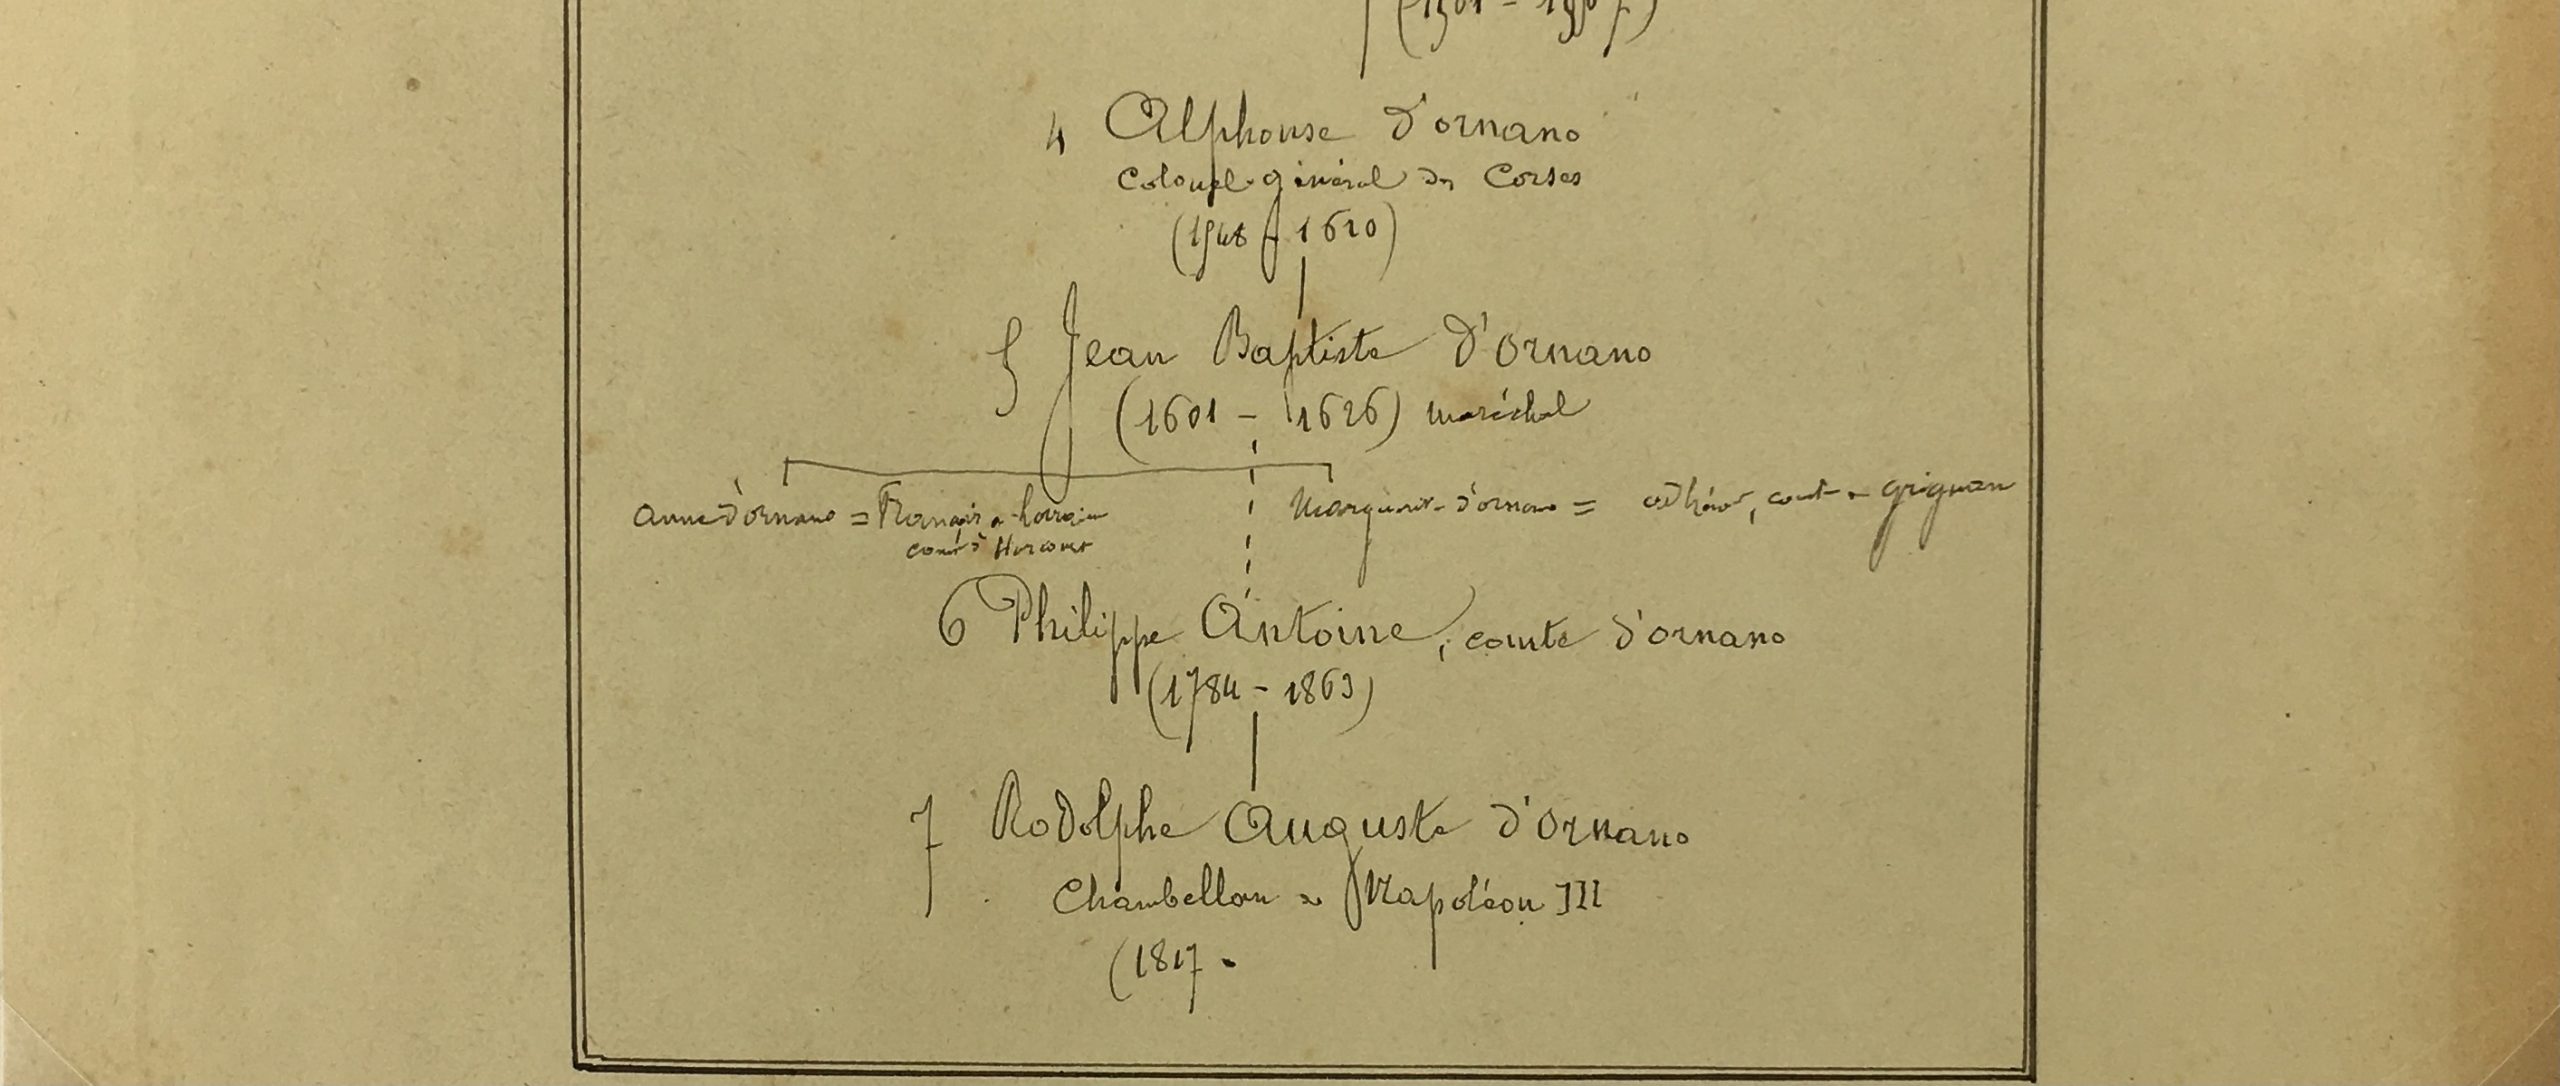 (1501 - 1567)
4 Alphonse d'ornano
Colonel-général des Corses
(1548 - 1610)
5 Jean Baptiste d'Ornano
(1601 - 1626) maréchal
Anne d'ornano = François de Lorraine
comte d'Harcourt
Marguerite d'ornano = adhémar, comte de Grignan
6 Philippe Antoine, comte d'ornano
(1784 - 1863)
7 Rodolphe Auguste d'Ornano
Chambellan de Napoléon III
(1817 -